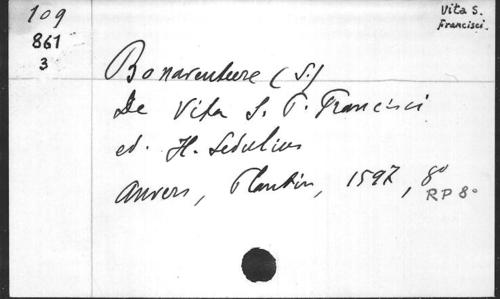 109
861
3
Vita S.
Francisci.
Bonaventure (S.)
De Vita S. P. Francisci
ed. H. Sedulius
Anvers, Plantin, 1597, 8°
RP 8°